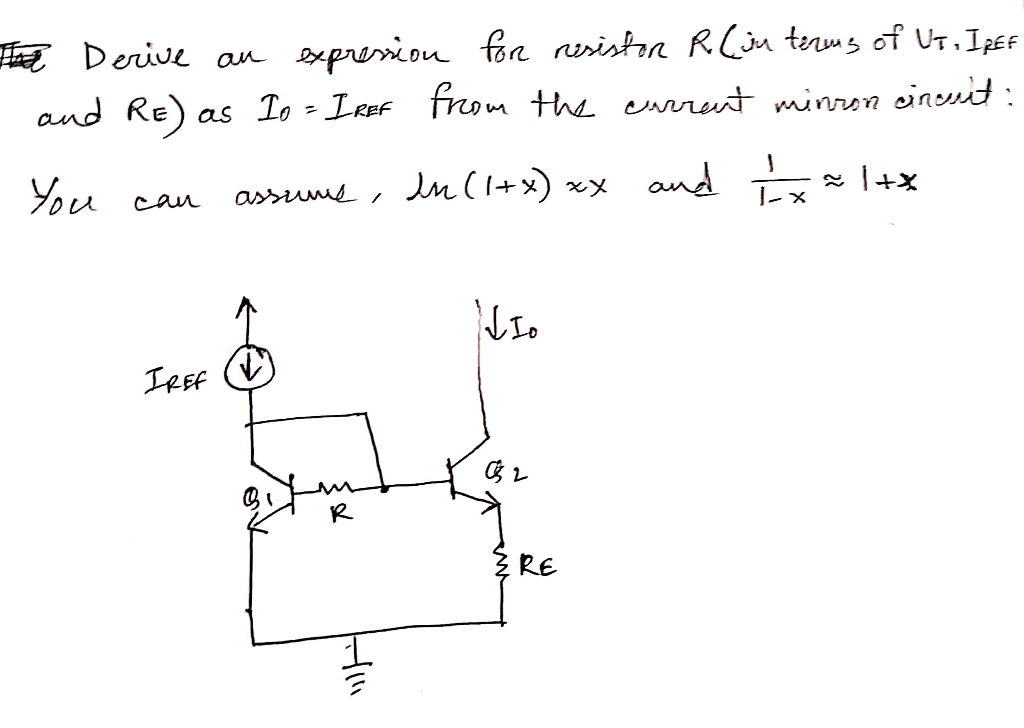 Derive an expression for resistor R (in terms of UT, IREF
and RE) as Io = IREF from the current mirror circuit :
You can assume, ln(1+x) ≈x and 1/1-x ≈ 1+x
↓Io
IREF
Q1
R
Q2
RE